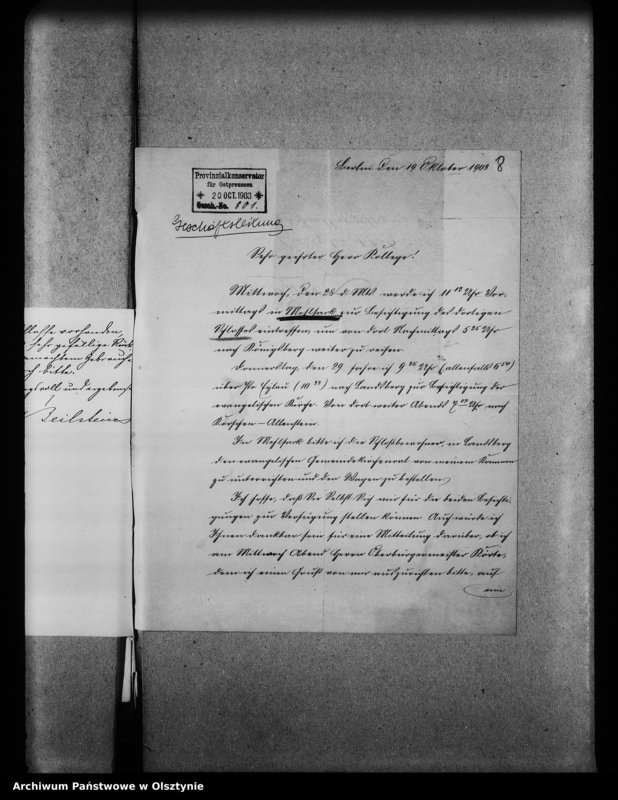 Schlosse vorhanden,
sehr gefällige Rück-
gemachtem Gebrauche
ich bitte.
ngsvoll und ergebenst
Beilstein
Berlin den 19 Oktober 1903
8
Provinzialkonservator
für Ostpreussen
20 OCT. 1903
Gesch.-No. 801.
Geschäftsleitung
Sehr geehrter Herr Kollege!
Mittwoch, den 28 d Mts werde ich 11 12 Uhr Vor-
mittags in Mehlsack zur Besichtigung des dortigen
Schlosses eintreffen, um von dort Nachmittags 5 25 Uhr
nach Königsberg weiter zu reisen.
Donnerstag, den 29 fahre ich 9 Uhr (allenfalls 6 54)
über Pr Eylau (10 ) nach Landsberg zur Besichtigung der
evangelischen Kirche. Von dort weiter Abends 7 Uhr nach
Korschen – Allenstein.
In Mehlsack bitte ich die Schloßbewohner, in Landsberg
den evangelischen Gemeindekirchenrat von meinem Kommen
zu unterrichten und den Wagen zu bestellen.
Ich hoffe, daß Sie Selbst Sich mir für die beiden Besichti-
gungen zur Verfügung stellen können. Auch würde ich
Ihnen dankbar sein für eine Mitteilung darüber, ob ich
am Mittwoch Abend Herrn Oberbürgermeister Körte,
dem ich einen Gruß von mir auszurichten bitte, auf
Archiwum Państwowe w Olsztynie